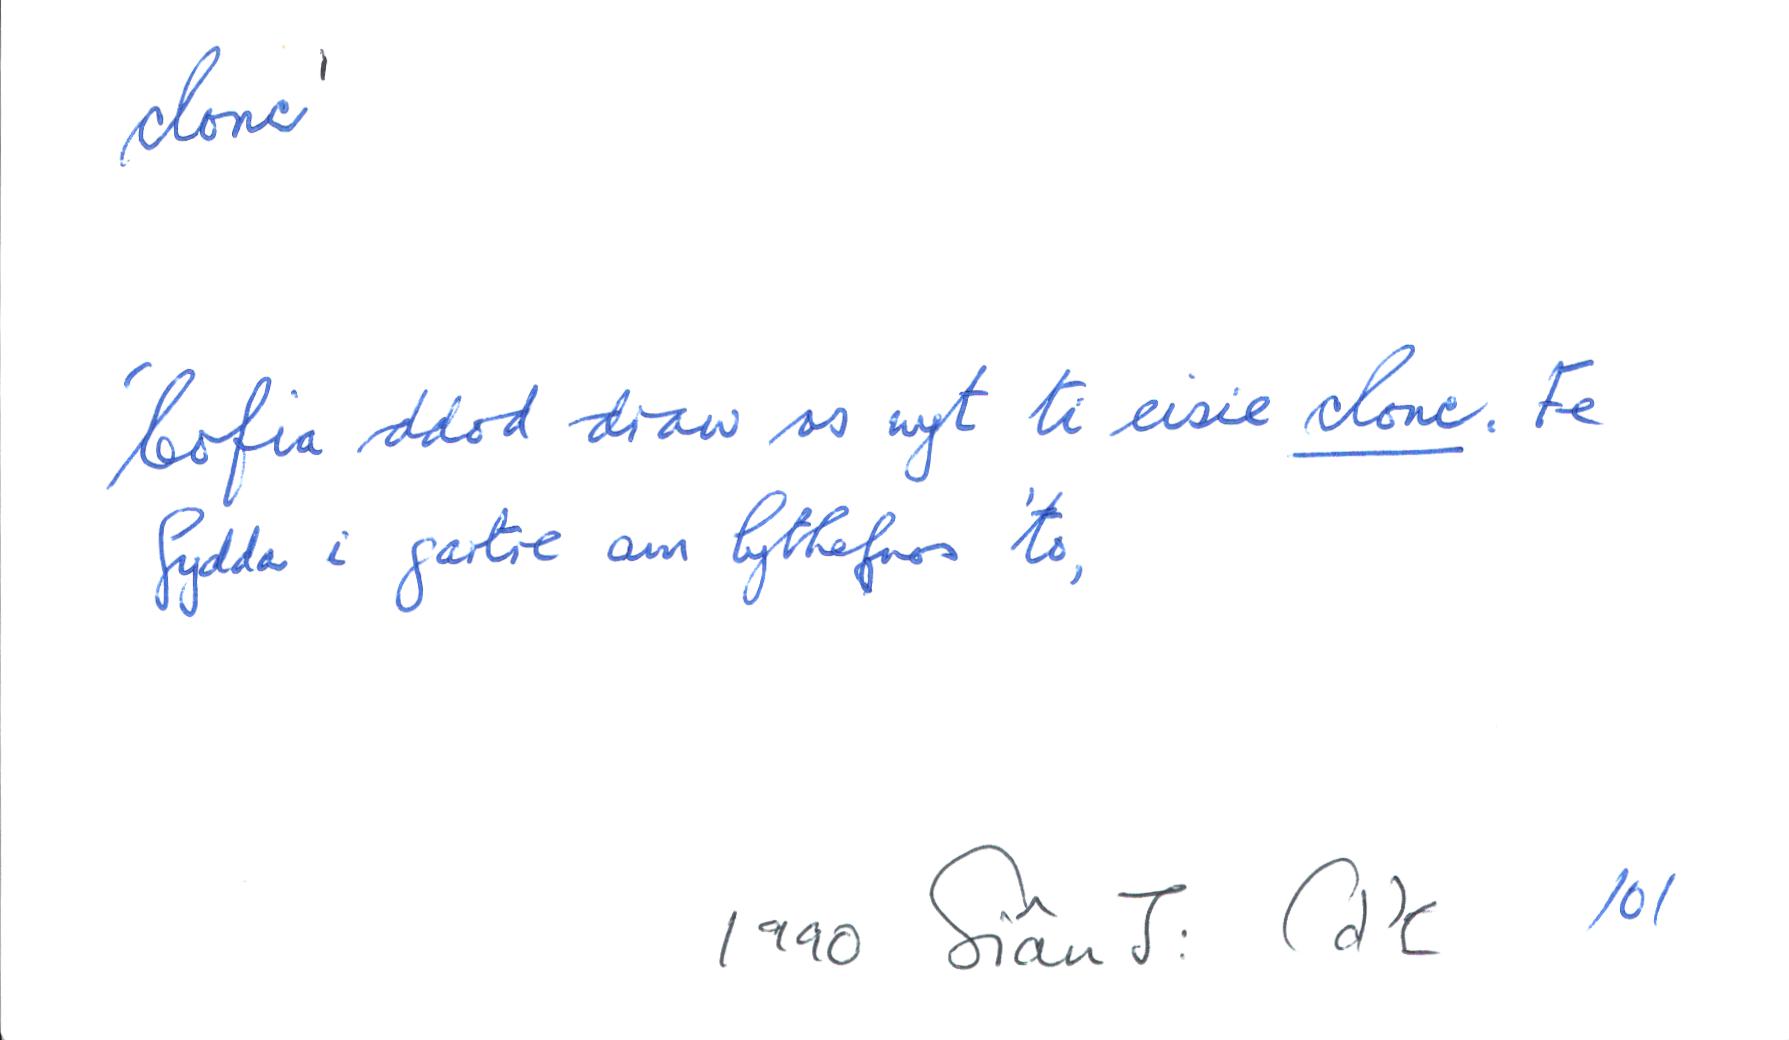 clonc'
'Cofia ddod draw os wyt ti eisie clonc. Fe
fydda i gartre am bythefnos 'to,
1990 Siân T: Cd'C 101